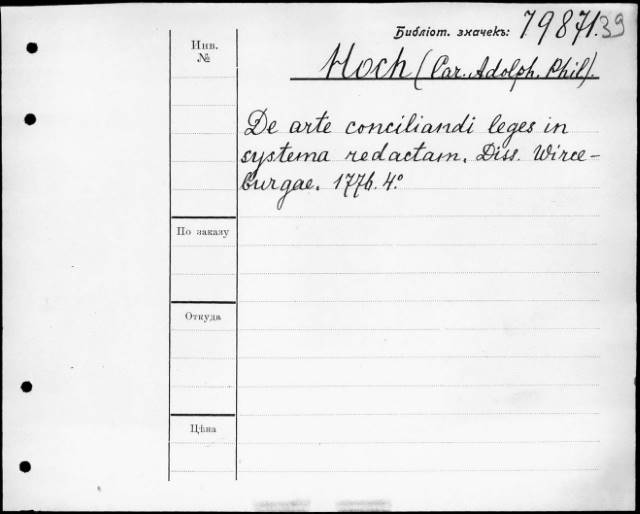 Библіот. значекъ: 79871.39
Инв.
№
Hoch (Car. Adolph. Phil).
De arte conciliandi leges in
systema redactam. Diss. Wirce-
burgae. 1776. 4.º
По заказу
Откуда
Цѣна